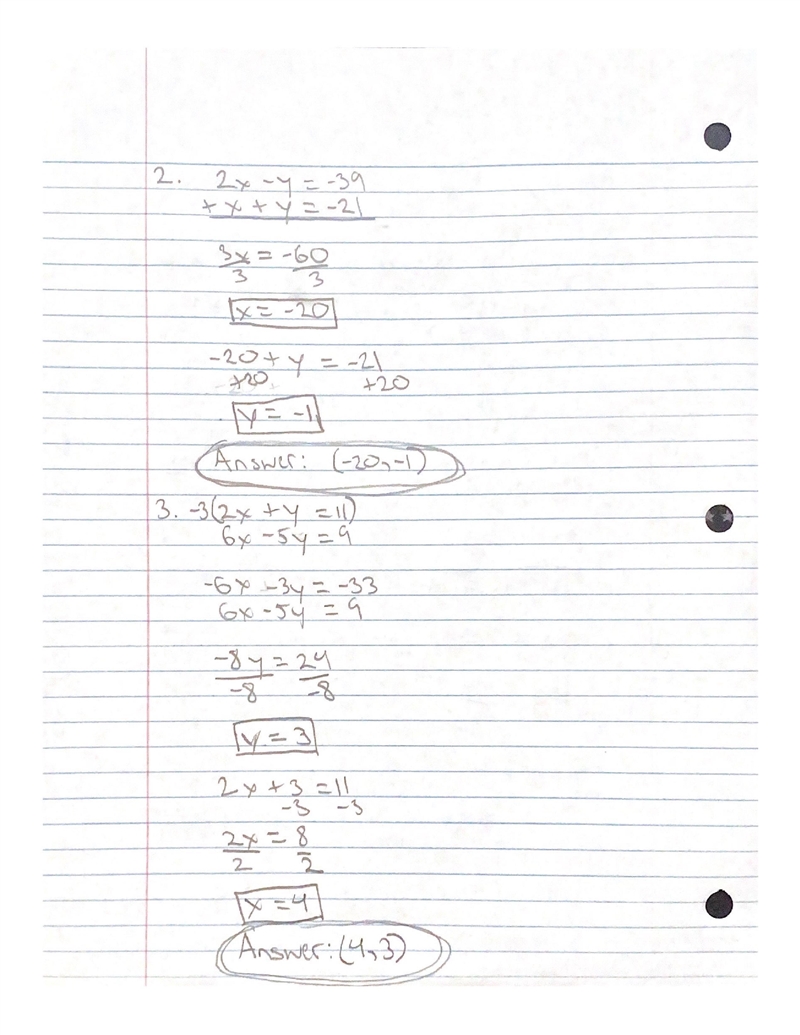 2. 2x - y = -39
+ x + y = -21
3x = -60
3 3
x = -20
-20 + y = -21
+20 +20
y = -1
Answer: (-20, -1)
3. -3(2x + y = 11)
6x - 5y = 9
-6x - 3y = -33
6x - 5y = 9
-8y = 24
-8 -8
y = 3
2x + 3 = 11
-3 -3
2x = 8
2 2
x = 4
Answer: (4, 3)